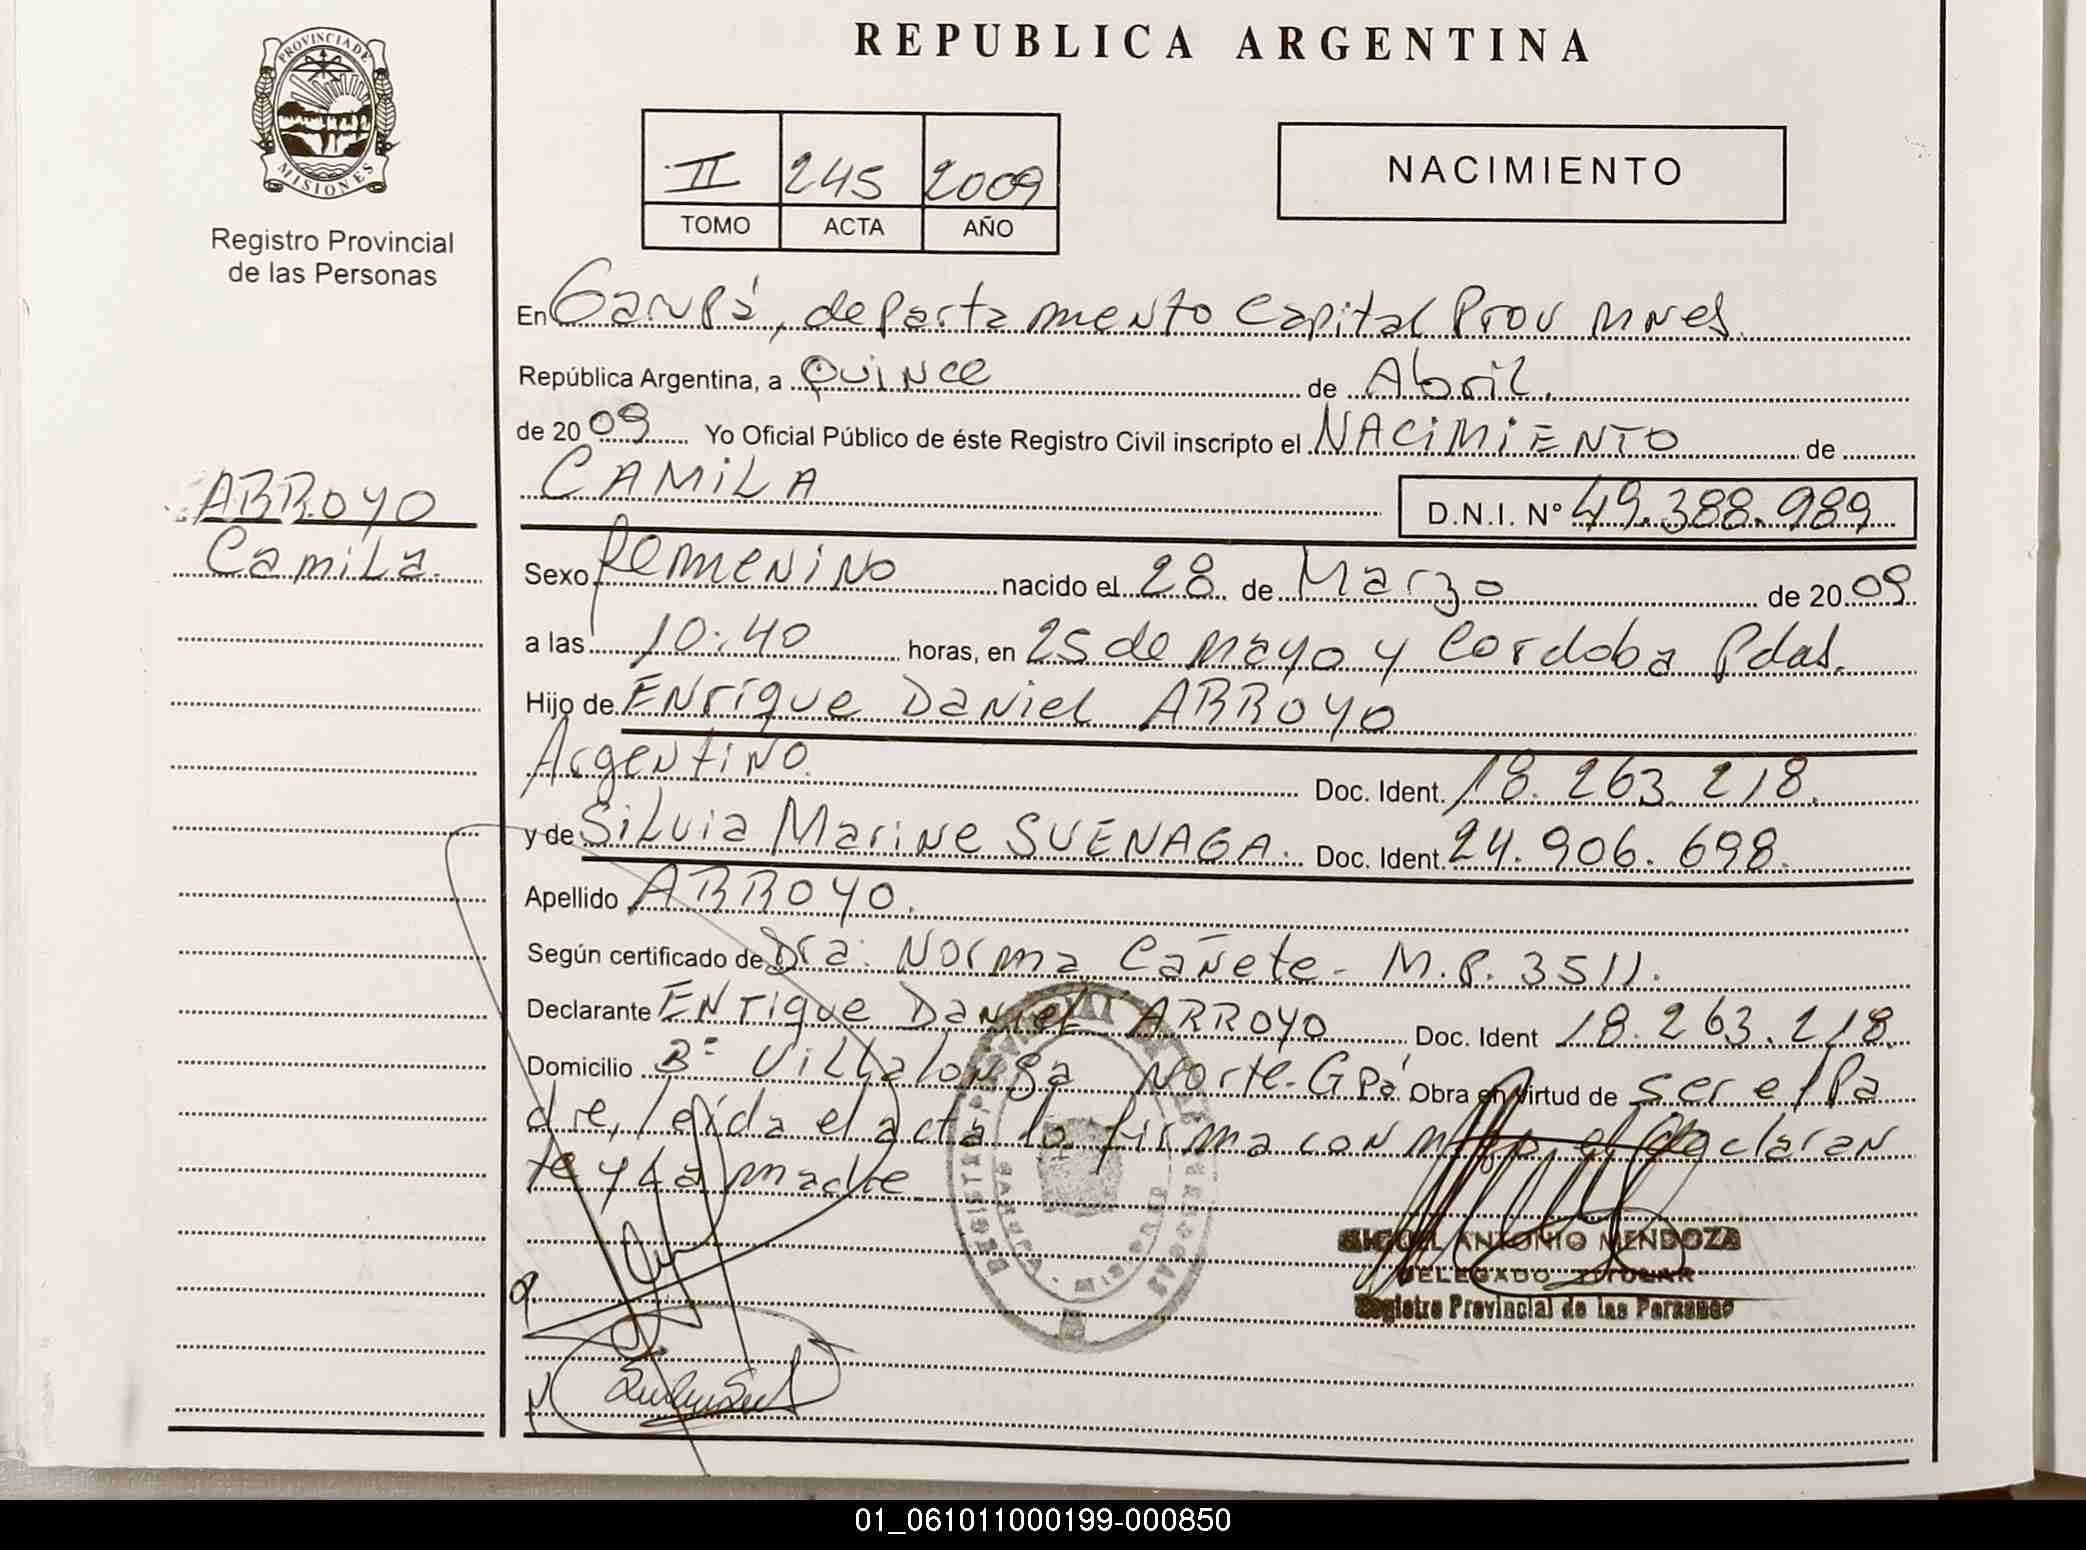 PROVINCIA DE
MISIONES
Registro Provincial
de las Personas
ARROYO
Camila.
REPUBLICA ARGENTINA
II 245 2009
TOMO ACTA AÑO
NACIMIENTO
En Garupá, departamento Capital Prov Mnes.
República Argentina, a Quince de Abril.
de 2009 Yo Oficial Público de éste Registro Civil inscripto el NACIMIENTO de
CAMILA D.N.I. N° 49.388.989
Sexo femenino nacido el 28 de Marzo de 2009
a las 10:40 horas, en 25 de mayo y Cordoba Pdas.
Hijo de Enrique Daniel ARROYO
Argentino. Doc. Ident. 18.263.218.
y de Silvia Marine SUENAGA. Doc. Ident. 24.906.698.
Apellido ARROYO.
Según certificado de Dra: Norma Cañete - M.P. 3511.
Declarante Enrique Daniel ARROYO Doc. Ident 18.263.218.
Domicilio B° Villalonga Norte-Gpá Obra en virtud de ser el Pa
dre, leída el acta la firma conmigo el declaran
te y la madre
MIGUEL ANTONIO MENDOZA
DELEGADO TITULAR
Registro Provincial de las Personas
01_061011000199-000850